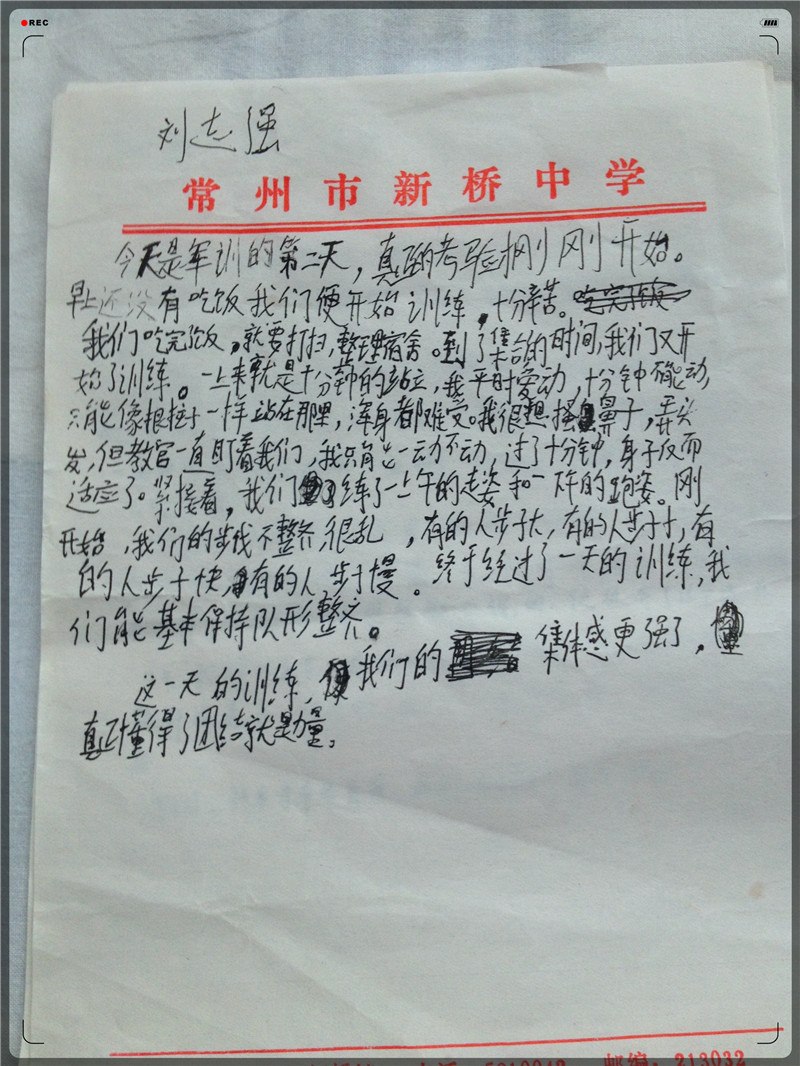 REC
刘志强
常州市新桥中学
今天是军训的第二天，真正的考验刚刚开始。
早上还没有吃饭我们便开始训练，十分辛苦。
我们吃完饭，就要打扫，整理宿舍。到了集合的时间，我们又开
始了训练。一上来就是十分钟的站立，我平时爱动，十分钟不能动，
只能像根柱子一样站在那里，浑身都难受。我很想搔鼻子，弄头
发，但教官一直盯着我们，我只能一动不动，过了十分钟，身子反而
适应了。紧接着，我们练了一上午的走姿和一下午的跑姿。刚
开始，我们的步伐不整齐，很乱，有的人步子大，有的人步子小，有
的人步子快，有的人步子慢。终于经过了一天的训练，我
们能基本保持队形整齐。
这一天的训练，使我们的集体感更强了，
真正懂得了团结就是力量。
邮编：213032